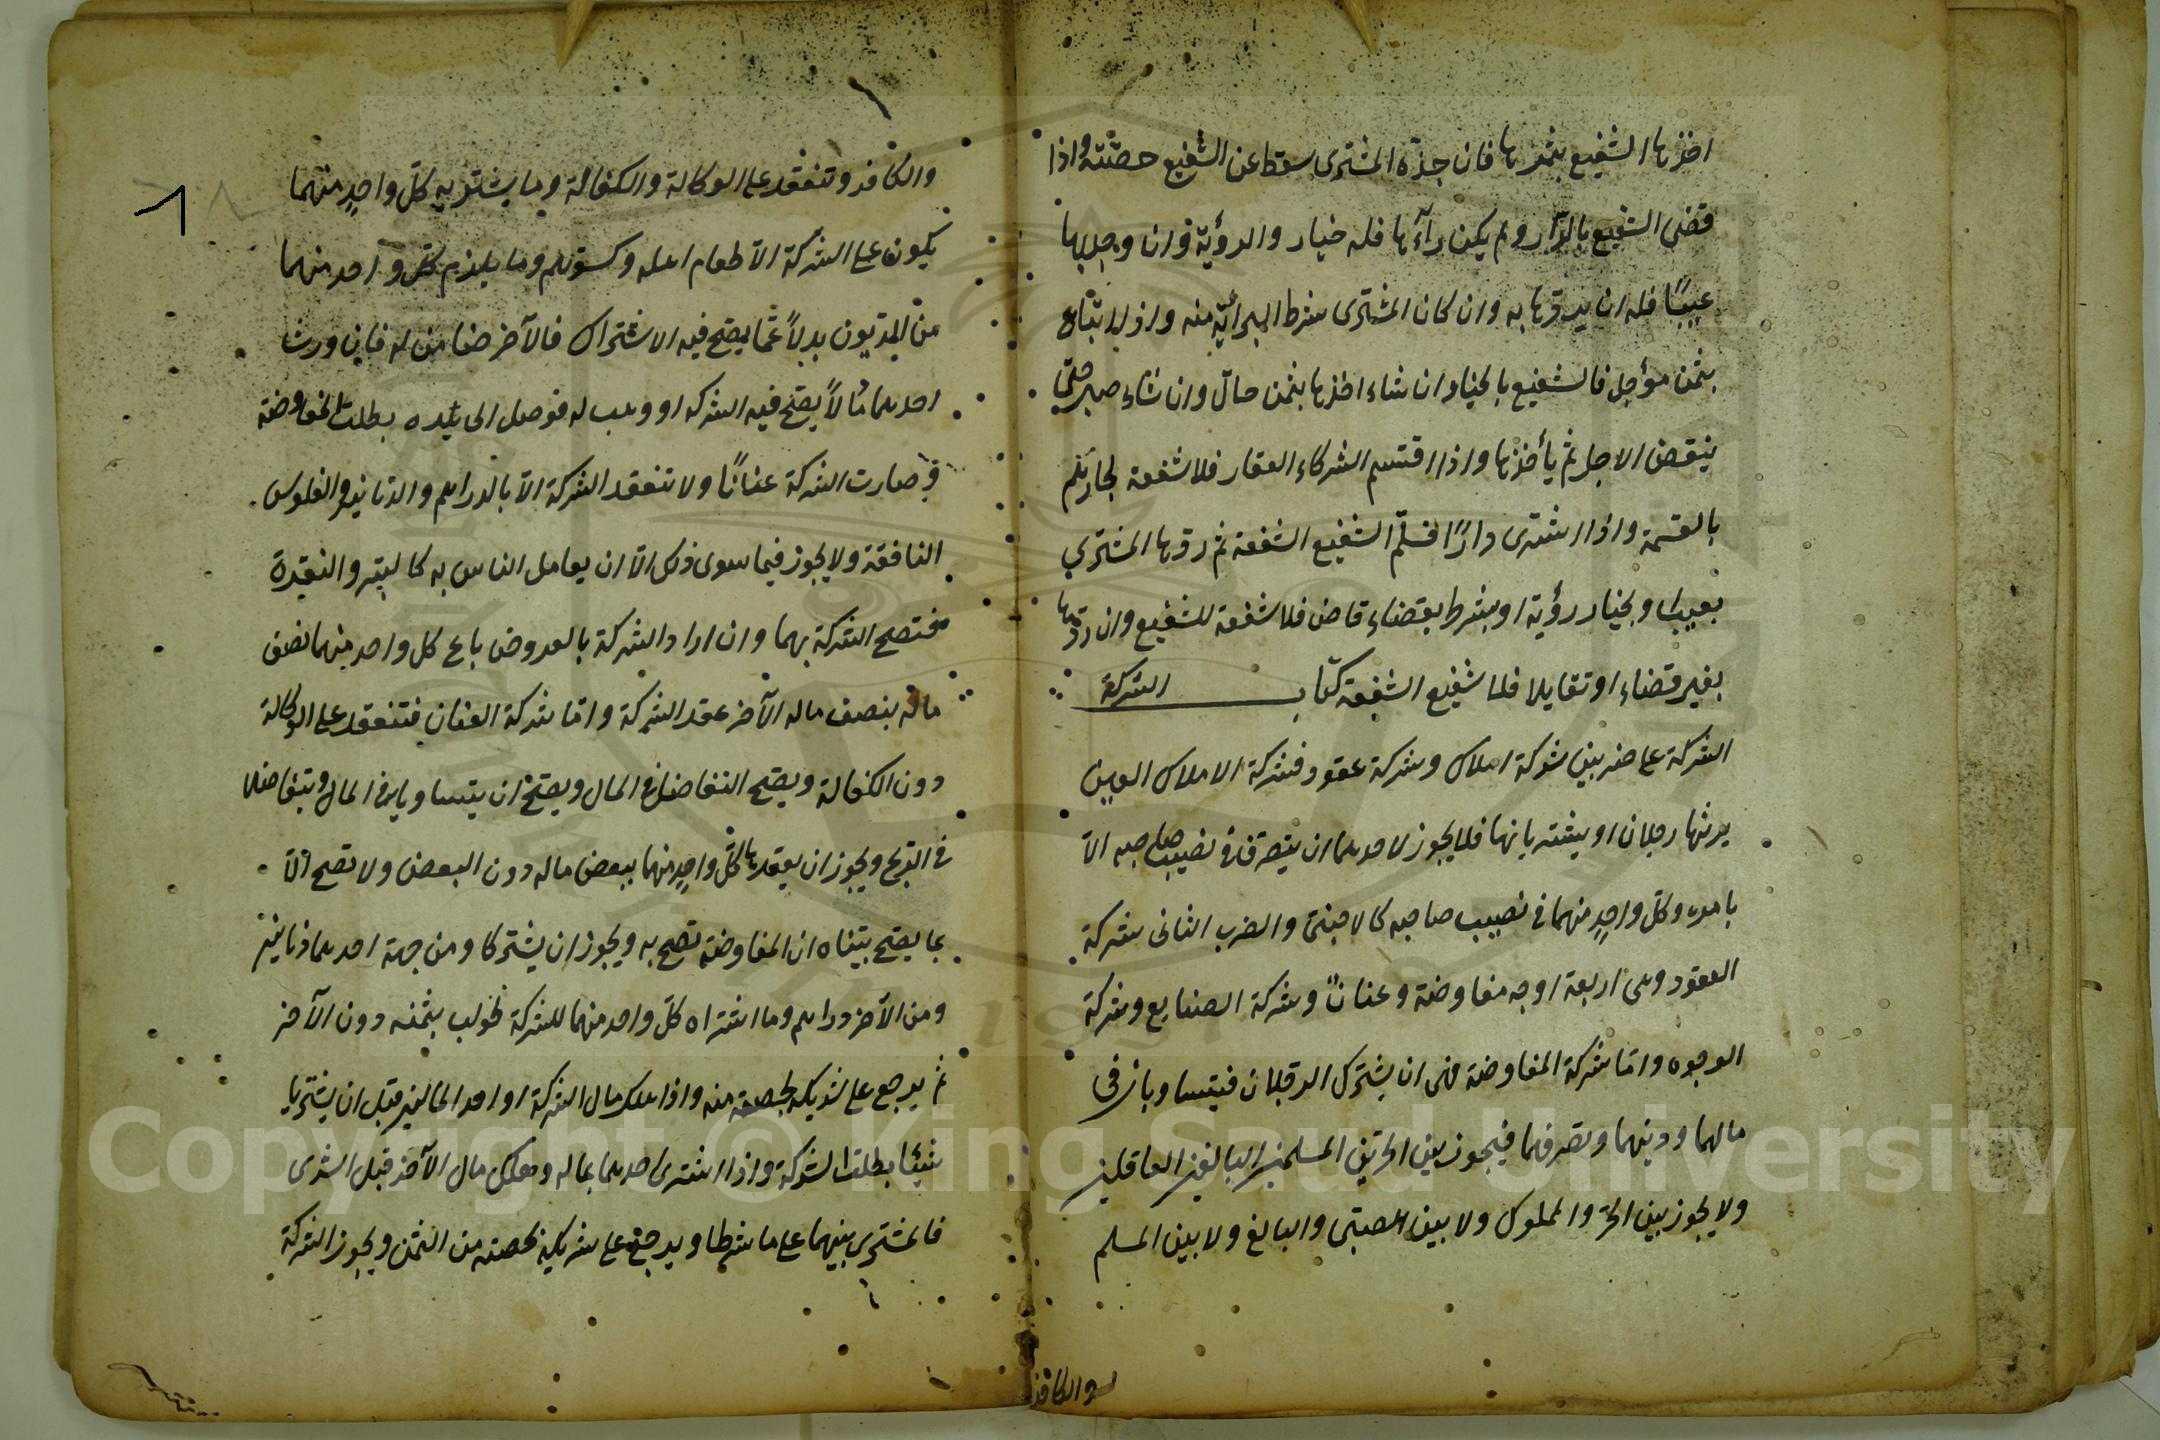 اخذها الشفيع بثمنها فان جذه المشترى سقط عن الشفيع حصته واذا
قضى الشفيع بالدار ولم يكن رآءها فله خيار والرؤية فان وجد بها
عيبًا فله ان يردها به وان كان المشترى شرط البرائة منه واذا ابتاع
بثمن مؤجل فالشفيع بالخيار ان شاء اخذها بثمن حال وان شاء صبر حتى
ينقض الاجل ثم يأخذها واذا اقتسم الشركاء العقار فلا شفعة لجارهم
بالقسمة واذا اشترى دارًا فسلم الشفيع الشفعة ثم ردها المشترى
بعيب او بخيار رؤية او بشرط بقضاء قاض فلا شفعة للشفيع وان ردها
بغير قضاء او تقايلا فللشفيع الشفعة كتاب الشركة
الشركة على ضربين شركة املاك وشركة عقود فشركة الاملاك العين
يرثها رجلان او يشتريانها فلا يجوز لاحدهما ان يتصرف فى نصيب صاحبه الا
بامره وكل واحدٍ منهما فى نصيب صاحبه كالاجنبى والضرب الثانى شركة
العقود وهى اربعة اوجه مفاوضة وعنان وشركة الصنايع وشركة
الوجوه واما شركة المفاوضة فهى ان يشترك الرجلان فيتساويان فى
مالهما ودينهما وتصرفهما فيجوز بين الحرين المسلمين البالغين العاقلين
ولا يجوز بين الحر والمملوك ولا بين الصبى والبالغ ولا بين المسلم
والكافر
والكافر وتنعقد على الوكالة والكفالة وما يشتريه كل واحدٍ منهما
يكون على الشركة الا طعام اهله وكسوتهم وما يلزم كل واحد منهما
من الديون بدلاً عما يصح فيه الاشتراك فالآخر ضامن له فان ورث
احدهما مالاً يصح فيه الشركه او وهب له فوصل الى يده بطلت المفاوضة
وصارت الشركة عنانًا ولا تنعقد الشركة الا بالدراهم والدنانير والفلوس
النافقة ولا يجوز فيما سوى ذلك الا ان يعامل الناس به كالتبر والنقرة
فتصح الشركة بهما وان ارادا الشركة بالعروض باع كل واحد منهما نصف
ماله بنصف ماله الآخر عقد الشركة واما شركة العنان فتنعقد على الوكالة
دون الكفالة ويصح التفاضل فى المال ويصح ان يتساويا فى المال ويتفاضلا
فى الربح ويجوز ان يعقدها كل واحدٍ منهما ببعض ماله دون البعض ولا تصح الا
بما يصح بيناه ان المفاوضة تصح به ويجوز ان يشتركا ومن جهة احدهما دنانير
ومن الآخر دراهم وما اشتراه كل واحد منهما للشركة طولب بثمنه دون الآخر
ثم يرجع على شريكه بحصته منه واذا هلك مال الشركة او احد المالين قبل ان يشتريا
شيئا بطلت الشركة واذا اشترى احدهما بماله وهلك مال الآخر قبل الشرى
فالمشترى بينهما على ما شرطا ويرجع على شريكه بحصته من الثمن ويجوز الشركة
Copyright © King Saud University